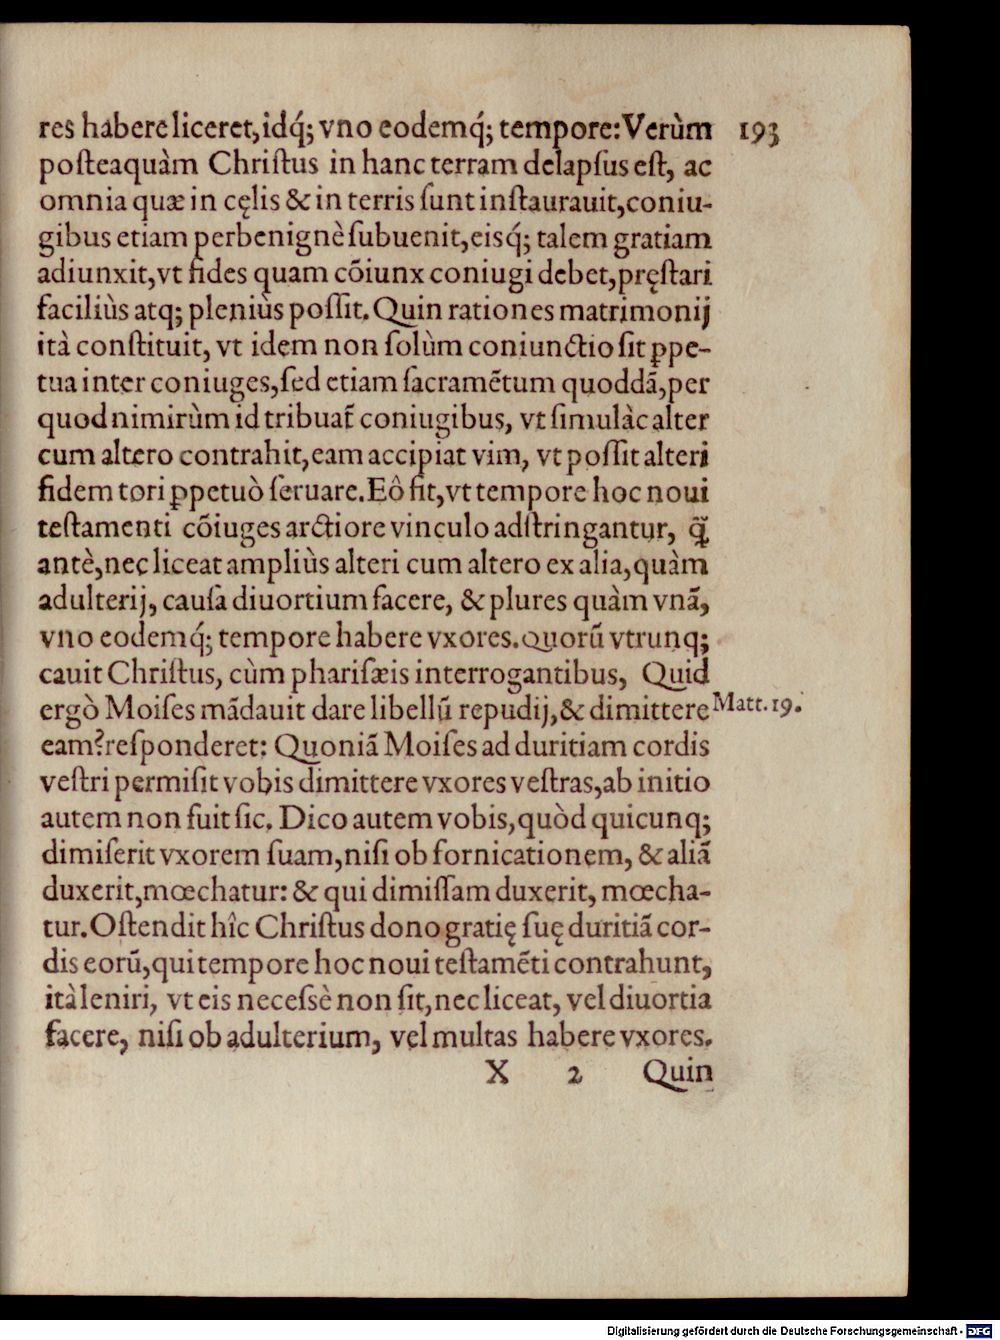 res habere liceret,idq́; vno eodemq́; tempore: Verùm 193
posteaquàm Christus in hanc terram delapsus est, ac
omnia quæ in cęlis & in terris sunt instaurauit, coniu-
gibus etiam perbenignè subuenit, eisq́; talem gratiam
adiunxit, vt fides quam cõiunx coniugi debet, pręstari
faciliùs atq; pleniùs possit. Quin rationes matrimonij
ità constituit, vt idem non solùm coniunctio sit ꝑpe-
tua inter coniuges, sed etiam sacramẽtum quoddã, per
quod nimirùm id tribuat̃ coniugibus, vt simulàc alter
cum altero contrahit, eam accipiat vim, vt possit alteri
fidem tori ꝑpetuò seruare. Eô fit, vt tempore hoc noui
testamenti cõiuges arctiore vinculo adstringantur, q̃̈
antè, nec liceat ampliùs alteri cum altero ex alia, quàm
adulterij, causa diuortium facere, & plures quàm vnã,
vno eodemq́; tempore habere vxores. quorũ vtrunq;
cauit Christus, cùm pharisæis interrogantibus, Quid
ergò Moises mãdauit dare libellũ repudij, & dimittere Matt. 19.
eam? responderet: Quoniã Moises ad duritiam cordis
vestri permisit vobis dimittere vxores vestras, ab initio
autem non fuit sic. Dico autem vobis, quòd quicunq;
dimiserit vxorem suam, nisi ob fornicationem, & aliã
duxerit, mœchatur: & qui dimissam duxerit, mœcha-
tur. Ostendit hîc Christus dono gratię suę duritiã cor-
dis eorũ, qui tempore hoc noui testamẽti contrahunt,
ità leniri, vt eis necessè non sit, nec liceat, vel diuortia
facere, nisi ob adulterium, vel multas habere vxores.
X 2 Quin
Digitalisierung gefördert durch die Deutsche Forschungsgemeinschaft - DFG